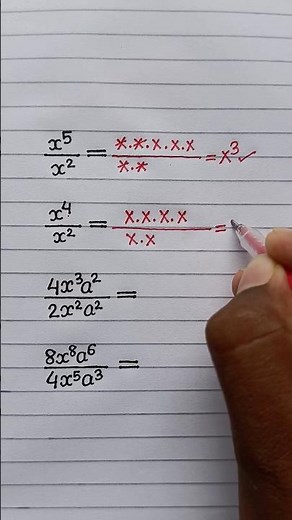 x⁵/x² = x.x.x.x.x/x.x = x³ ✓
x⁴/x² = x.x.x.x/x.x =
4x³a²/2x²a² =
8x⁸a⁶/4x⁵a³ =